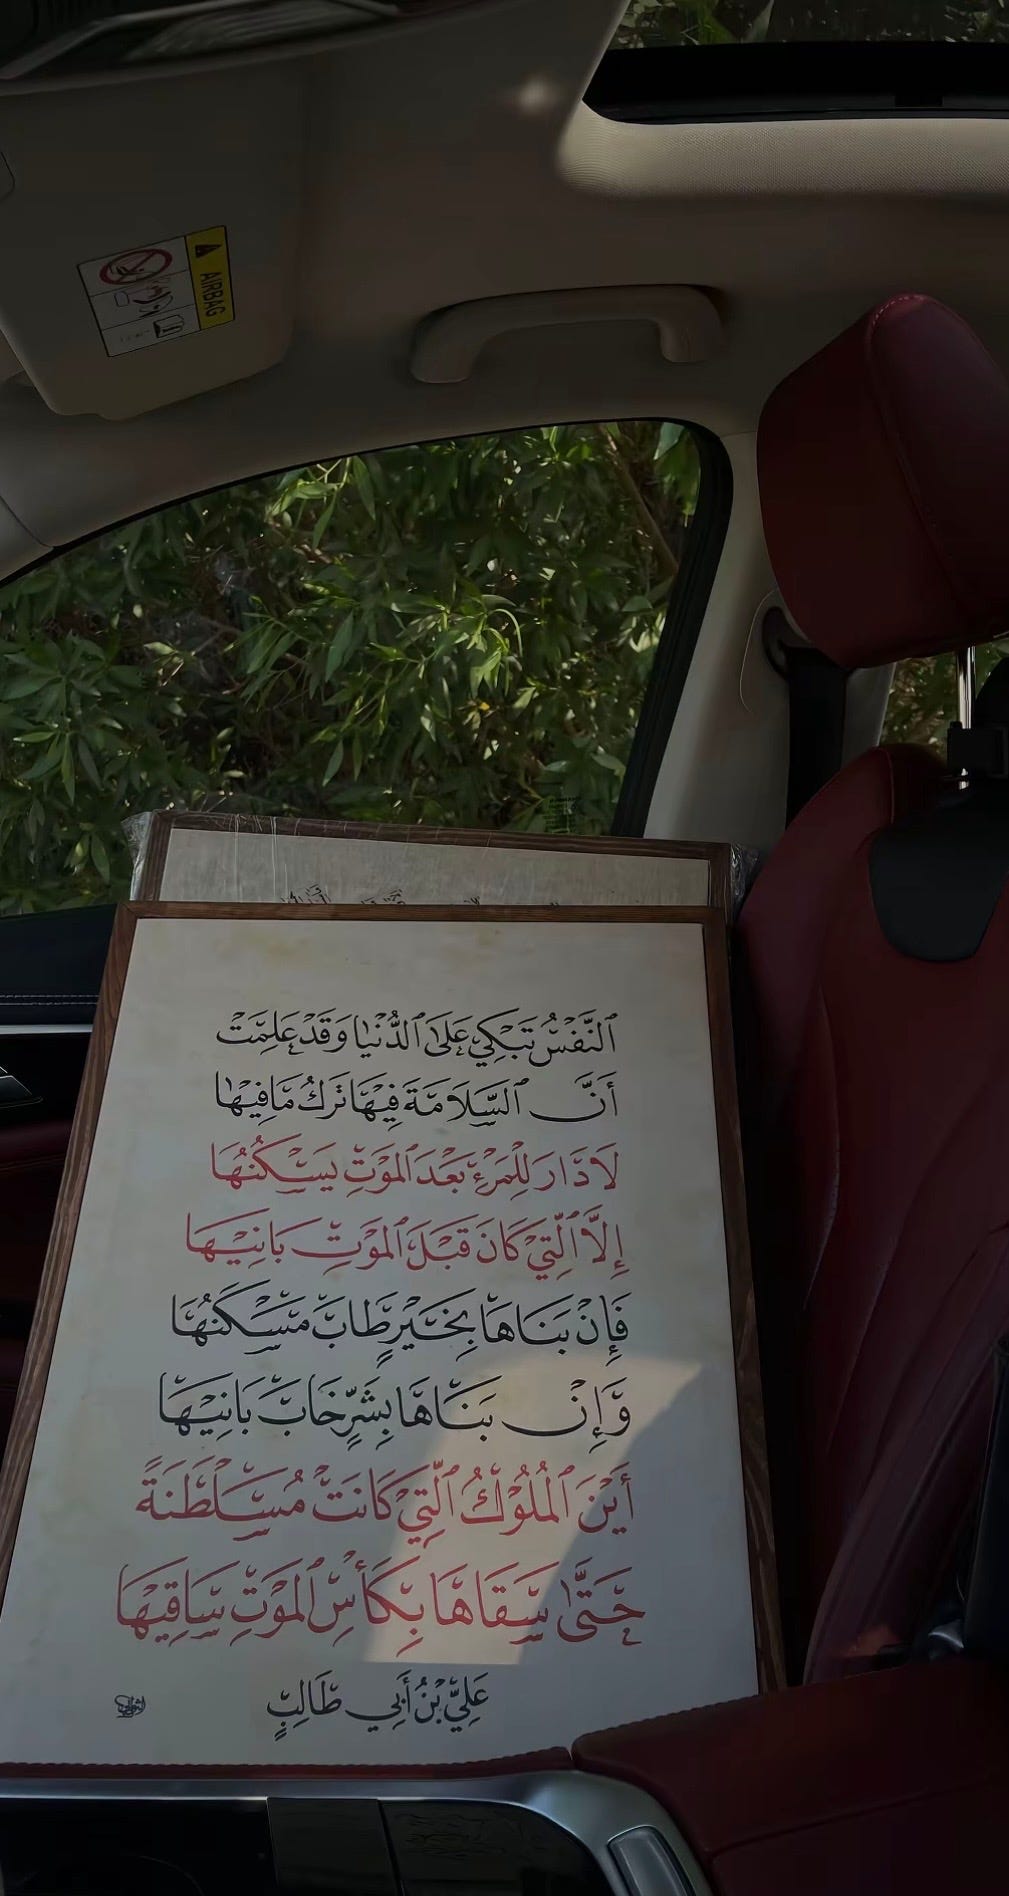 AIRBAG
ٱلنَّفْسُ تَبْكِي عَلَىٰ ٱلدُّنْيَا وَقَدْ عَلِمَتْ
أَنَّ ٱلسَّلَامَةَ فِيهَا تَرْكُ مَا فِيهَا
لَا دَارَ لِلْمَرْءِ بَعْدَ ٱلْمَوْتِ يَسْكُنُهَا
إِلَّا ٱلَّتِي كَانَ قَبْلَ ٱلْمَوْتِ بَانِيهَا
فَإِنْ بَنَاهَا بِخَيْرٍ طَابَ مَسْكَنُهَا
وَإِنْ بَنَاهَا بِشَرٍّ خَابَ بَانِيهَا
أَيْنَ ٱلْمُلُوكُ ٱلَّتِي كَانَتْ مُسَلْطَنَةً
حَتَّىٰ سَقَاهَا بِكَأْسِ ٱلْمَوْتِ سَاقِيهَا
عَلِيُّ بْنُ أَبِي طَالِبٍ